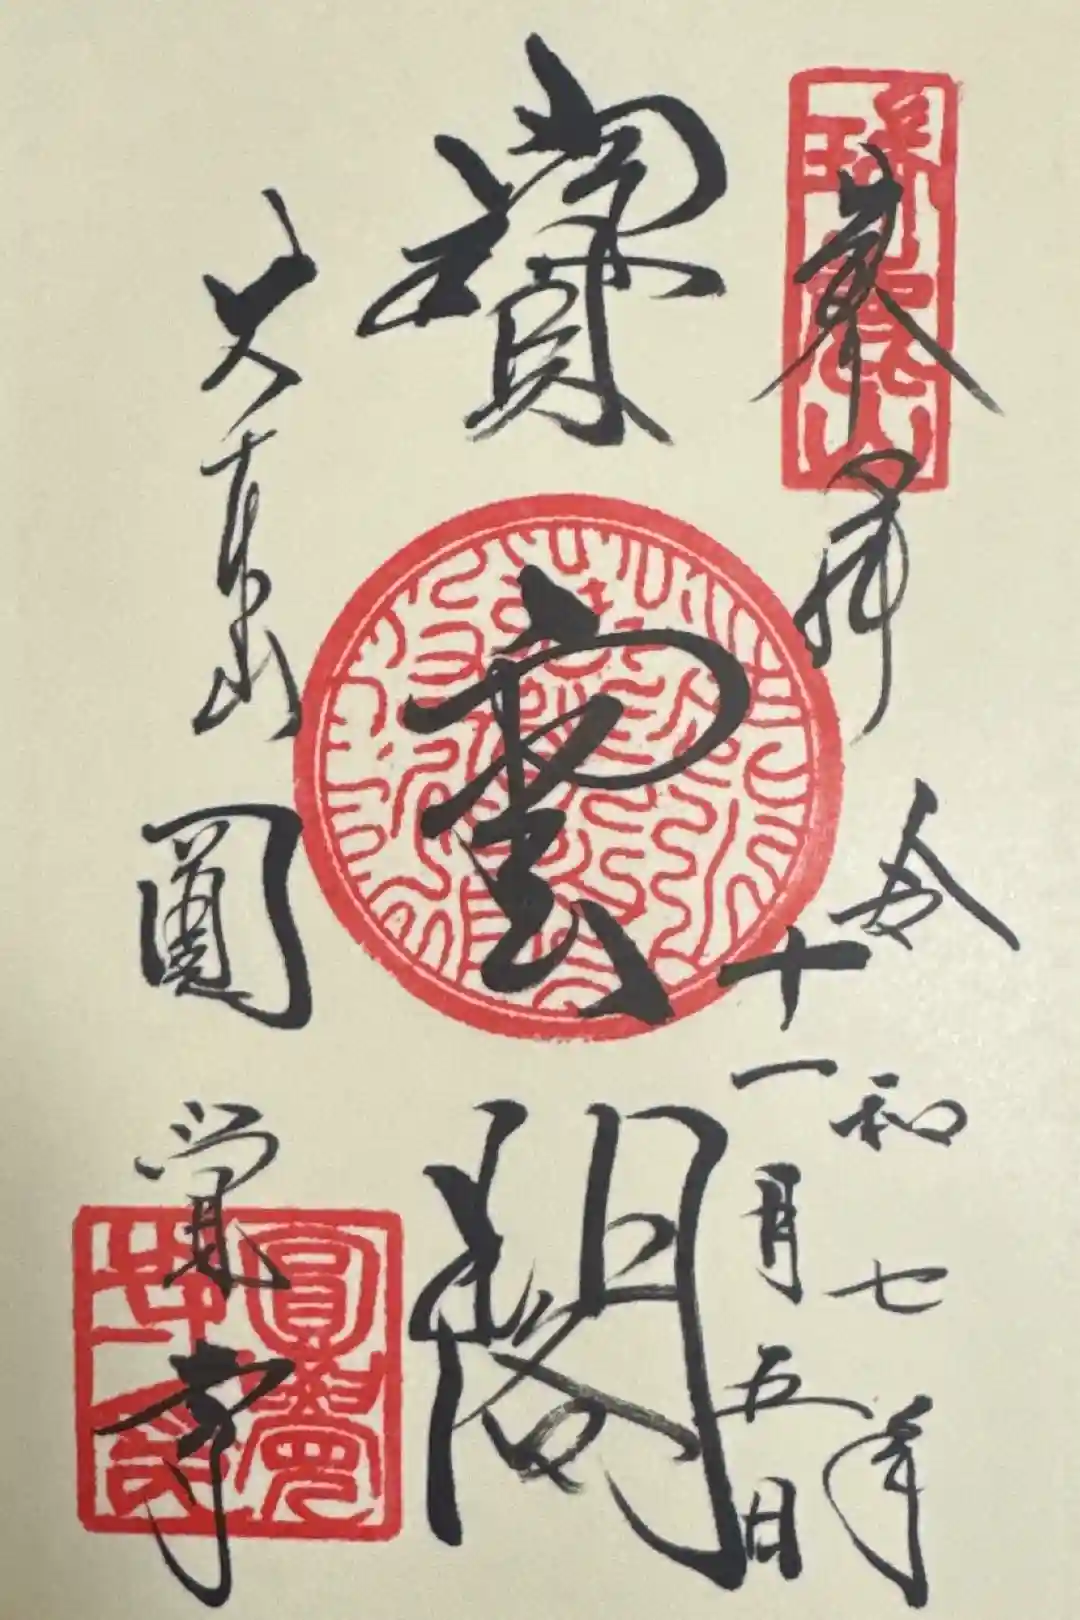 奉拜
令和七年
十一月五日
寶雲閣
大本山
圓覺寺
瑞鹿山